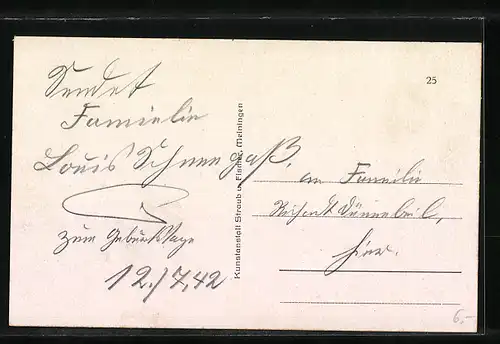 Sendet
Familie
Louis Schneegaß,
zum Geburtstage
12./7.42
Kunstanstalt Straub u. Fischer, Meiningen
25
an Familie
Richard Dünnebeil,
hier.
6,-